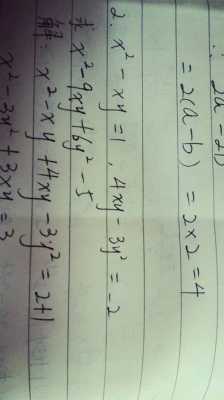 ∴ 2a-2b
=2(a-b) = 2×2=4
2. x²-xy=1, 4xy-3y²=-2
求 x²-9xy+6y²-5
解: x²-xy+4xy-3y²=2+1
x²-3y²+3xy=3